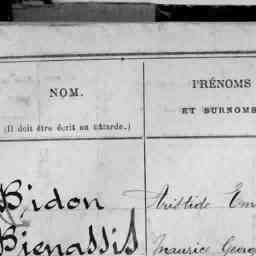 NOM.
PRÉNOMS
ET SURNOMS
(Il doit être écrit en bâtarde.)
Bidon Aristide Em
Bienassis Maurice Georg